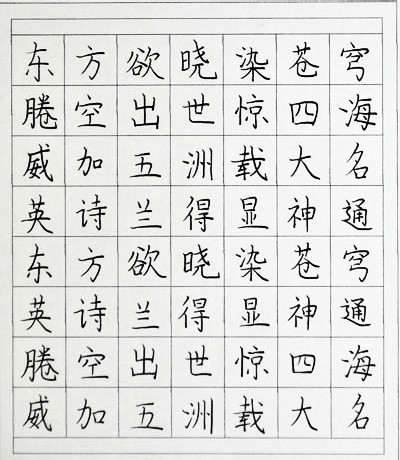 东方欲晓染苍穹
腾空出世惊四海
威加五洲载大名
英诗兰得显神通
东方欲晓染苍穹
英诗兰得显神通
腾空出世惊四海
威加五洲载大名